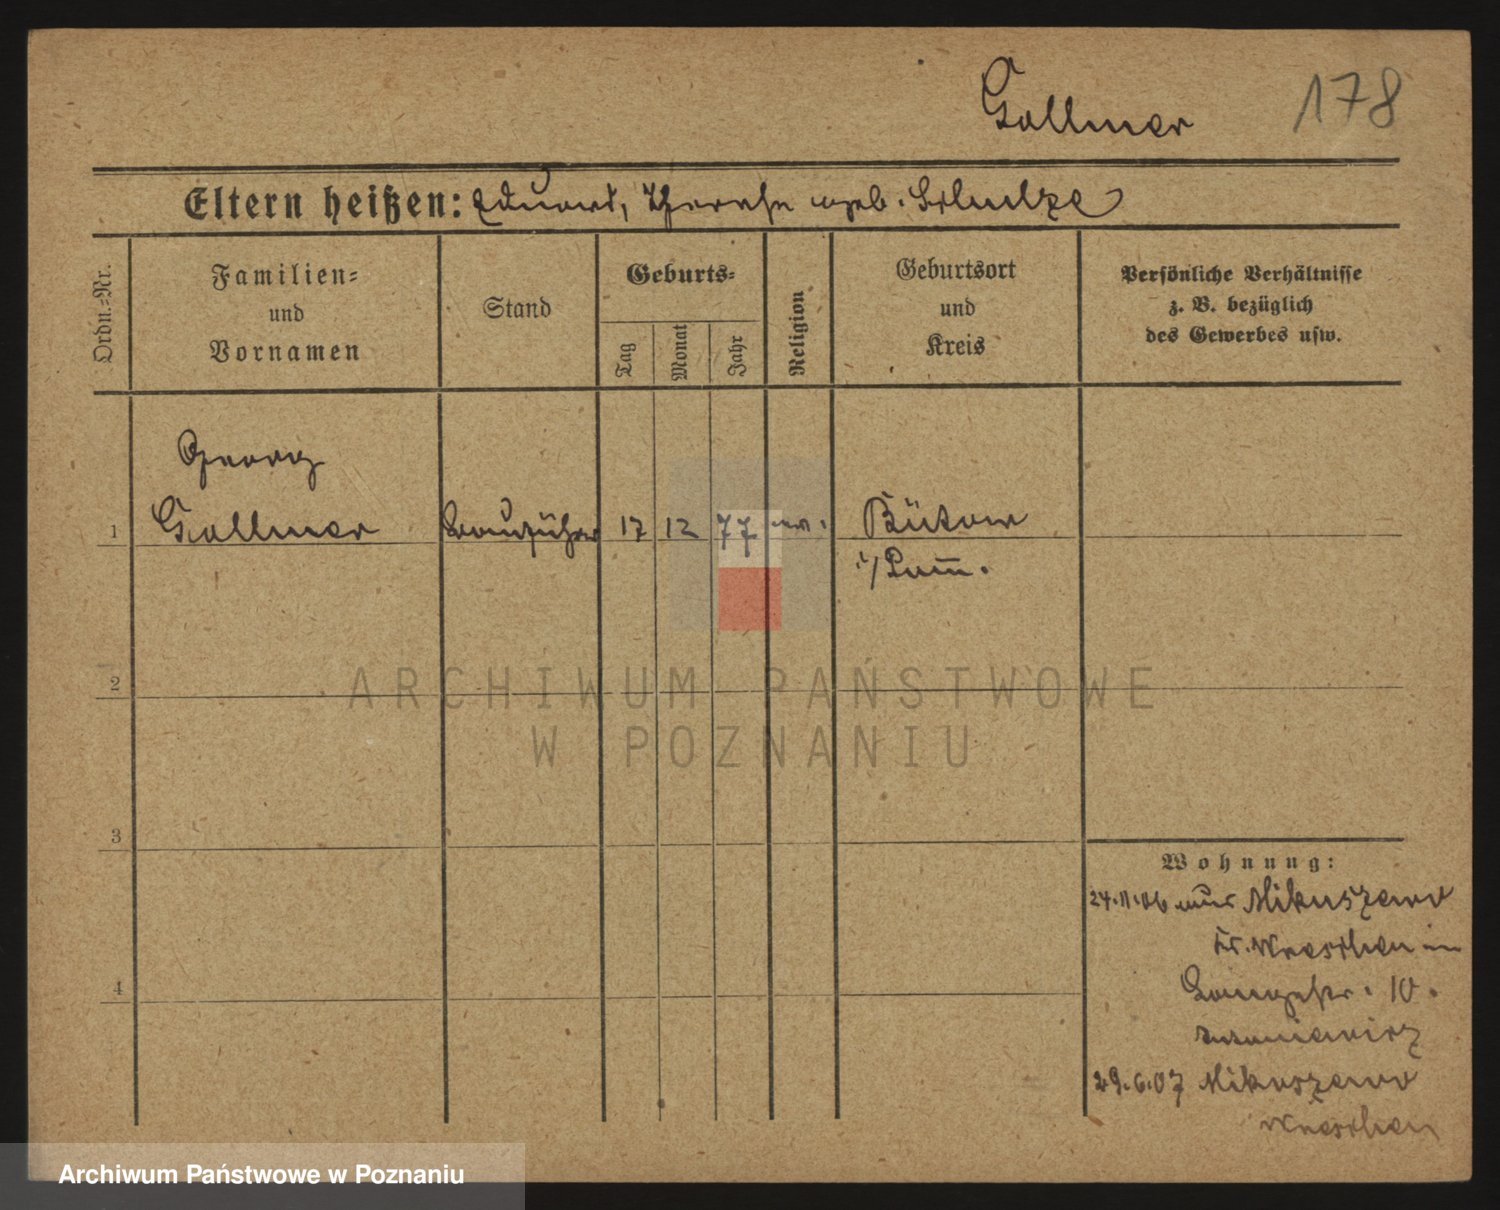 Gollmer 178
Eltern heißen: Eduard, Therese geb. Schulze
Ordn.-Nr.
Familien-
und
Vornamen
Stand
Geburts-
Tag
Monat
Jahr
Religion
Geburtsort
und
Kreis
Persönliche Verhältnisse
z. B. bezüglich
des Gewerbes usw.
Georg
1 Gollmer Bauführer 17 12 77 ev. Bütow
i/Pom̅.
2
ARCHIWUM PAŃSTWOWE
W POZNANIU
3
Wohnung:
24.11.06 aus Mikuszewo
Kr. Wreschen in
Langestr. 10.
29.6.07 Mikuszewo
Wreschen
4
Archiwum Państwowe w Poznaniu